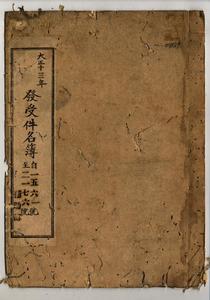 大正十三年
發受件名簿
自一五六一號
至二一七六號